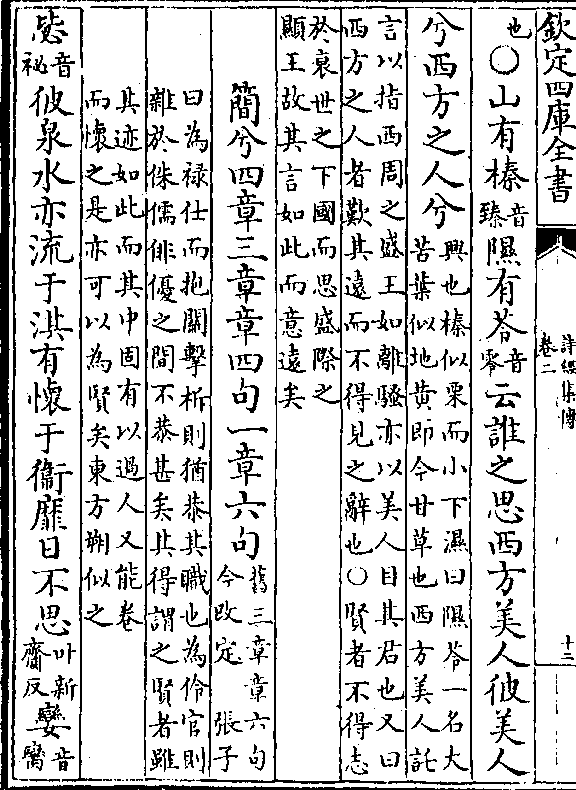 欽定四庫全書
詩經集傳
卷二
也○山有榛音臻隰有苓音零云誰之思西方美人彼美人
兮西方之人兮興也榛似栗而小下濕曰隰苓一名大
苦葉似地黄即今甘草也西方美人託
言以指西周之盛王如離騷亦以美人目其君也又曰
西方之人者歎其遠而不得見之辭也○賢者不得志
於衰世之下國而思盛際之
顯王故其言如此而意遠矣
簡兮四章三章章四句一章六句舊三章章六句
今改定 張子
曰為禄仕而抱關擊柝則猶恭其職也為伶官則
雜於侏儒俳優之間不恭甚矣其得謂之賢者雖
其迹如此而其中固有以過人又能卷
而懷之是亦可以為賢矣東方朔似之
毖音祕彼泉水亦流于淇有懷于衞靡日不思叶新齎反孌音臠